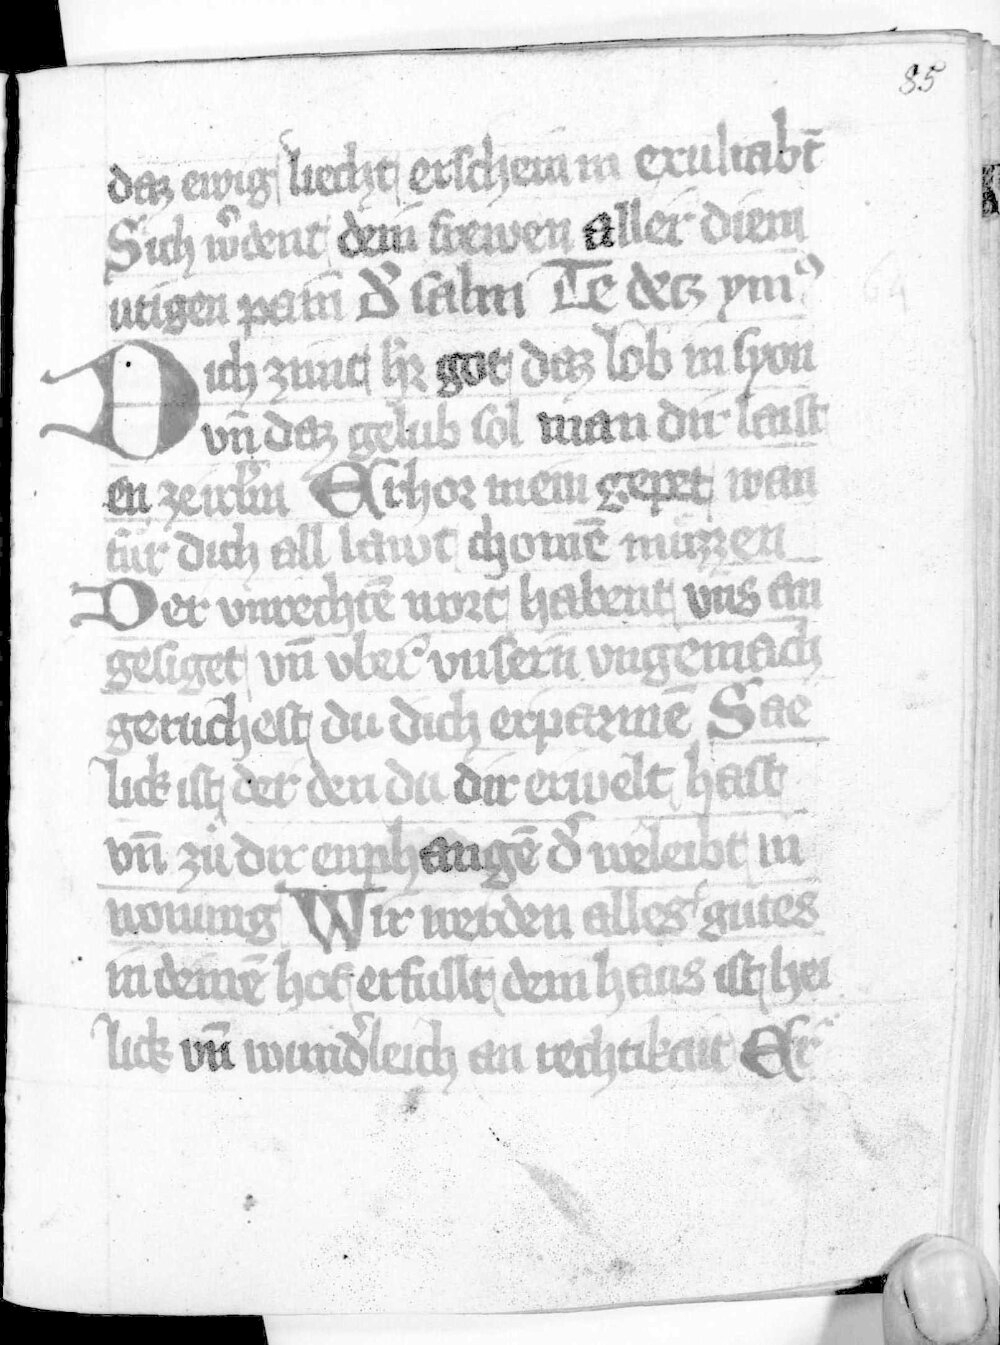 85
daz ewig liecht erschein in exultabt̄
Sich wͤdent dein frewen aller diem
utigen pain dͤ salm Te decz ymꝰ
Dich zimt hͤr got daz lob in syon
vn̄ daz gelub sol man dir laist
en ze irlm̄ Erhor mein gepet wan
fur dich all lawt chomē muzzen
Der vnrechtē wort habent vns an
gesiget vn̄ vber vnsern vngemach
geruchest du dich erparmē Sae
lick ist der den du dir erwelt hast
vn̄ zu dir enphangē dͤ weleibt in
wonung Wir werden alles gutes
in deinē hof erfullt dein haus ist hei
lick vn̄ wundͤleich an rechtikait Er